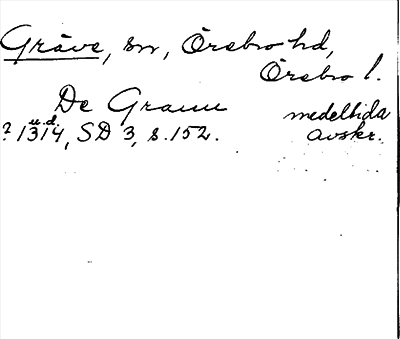 Gräve, sn, Örebro hd,
Örebro l.
De Grauu medeltida
u.d.
? 1314, SD 3, s. 152. avskr.